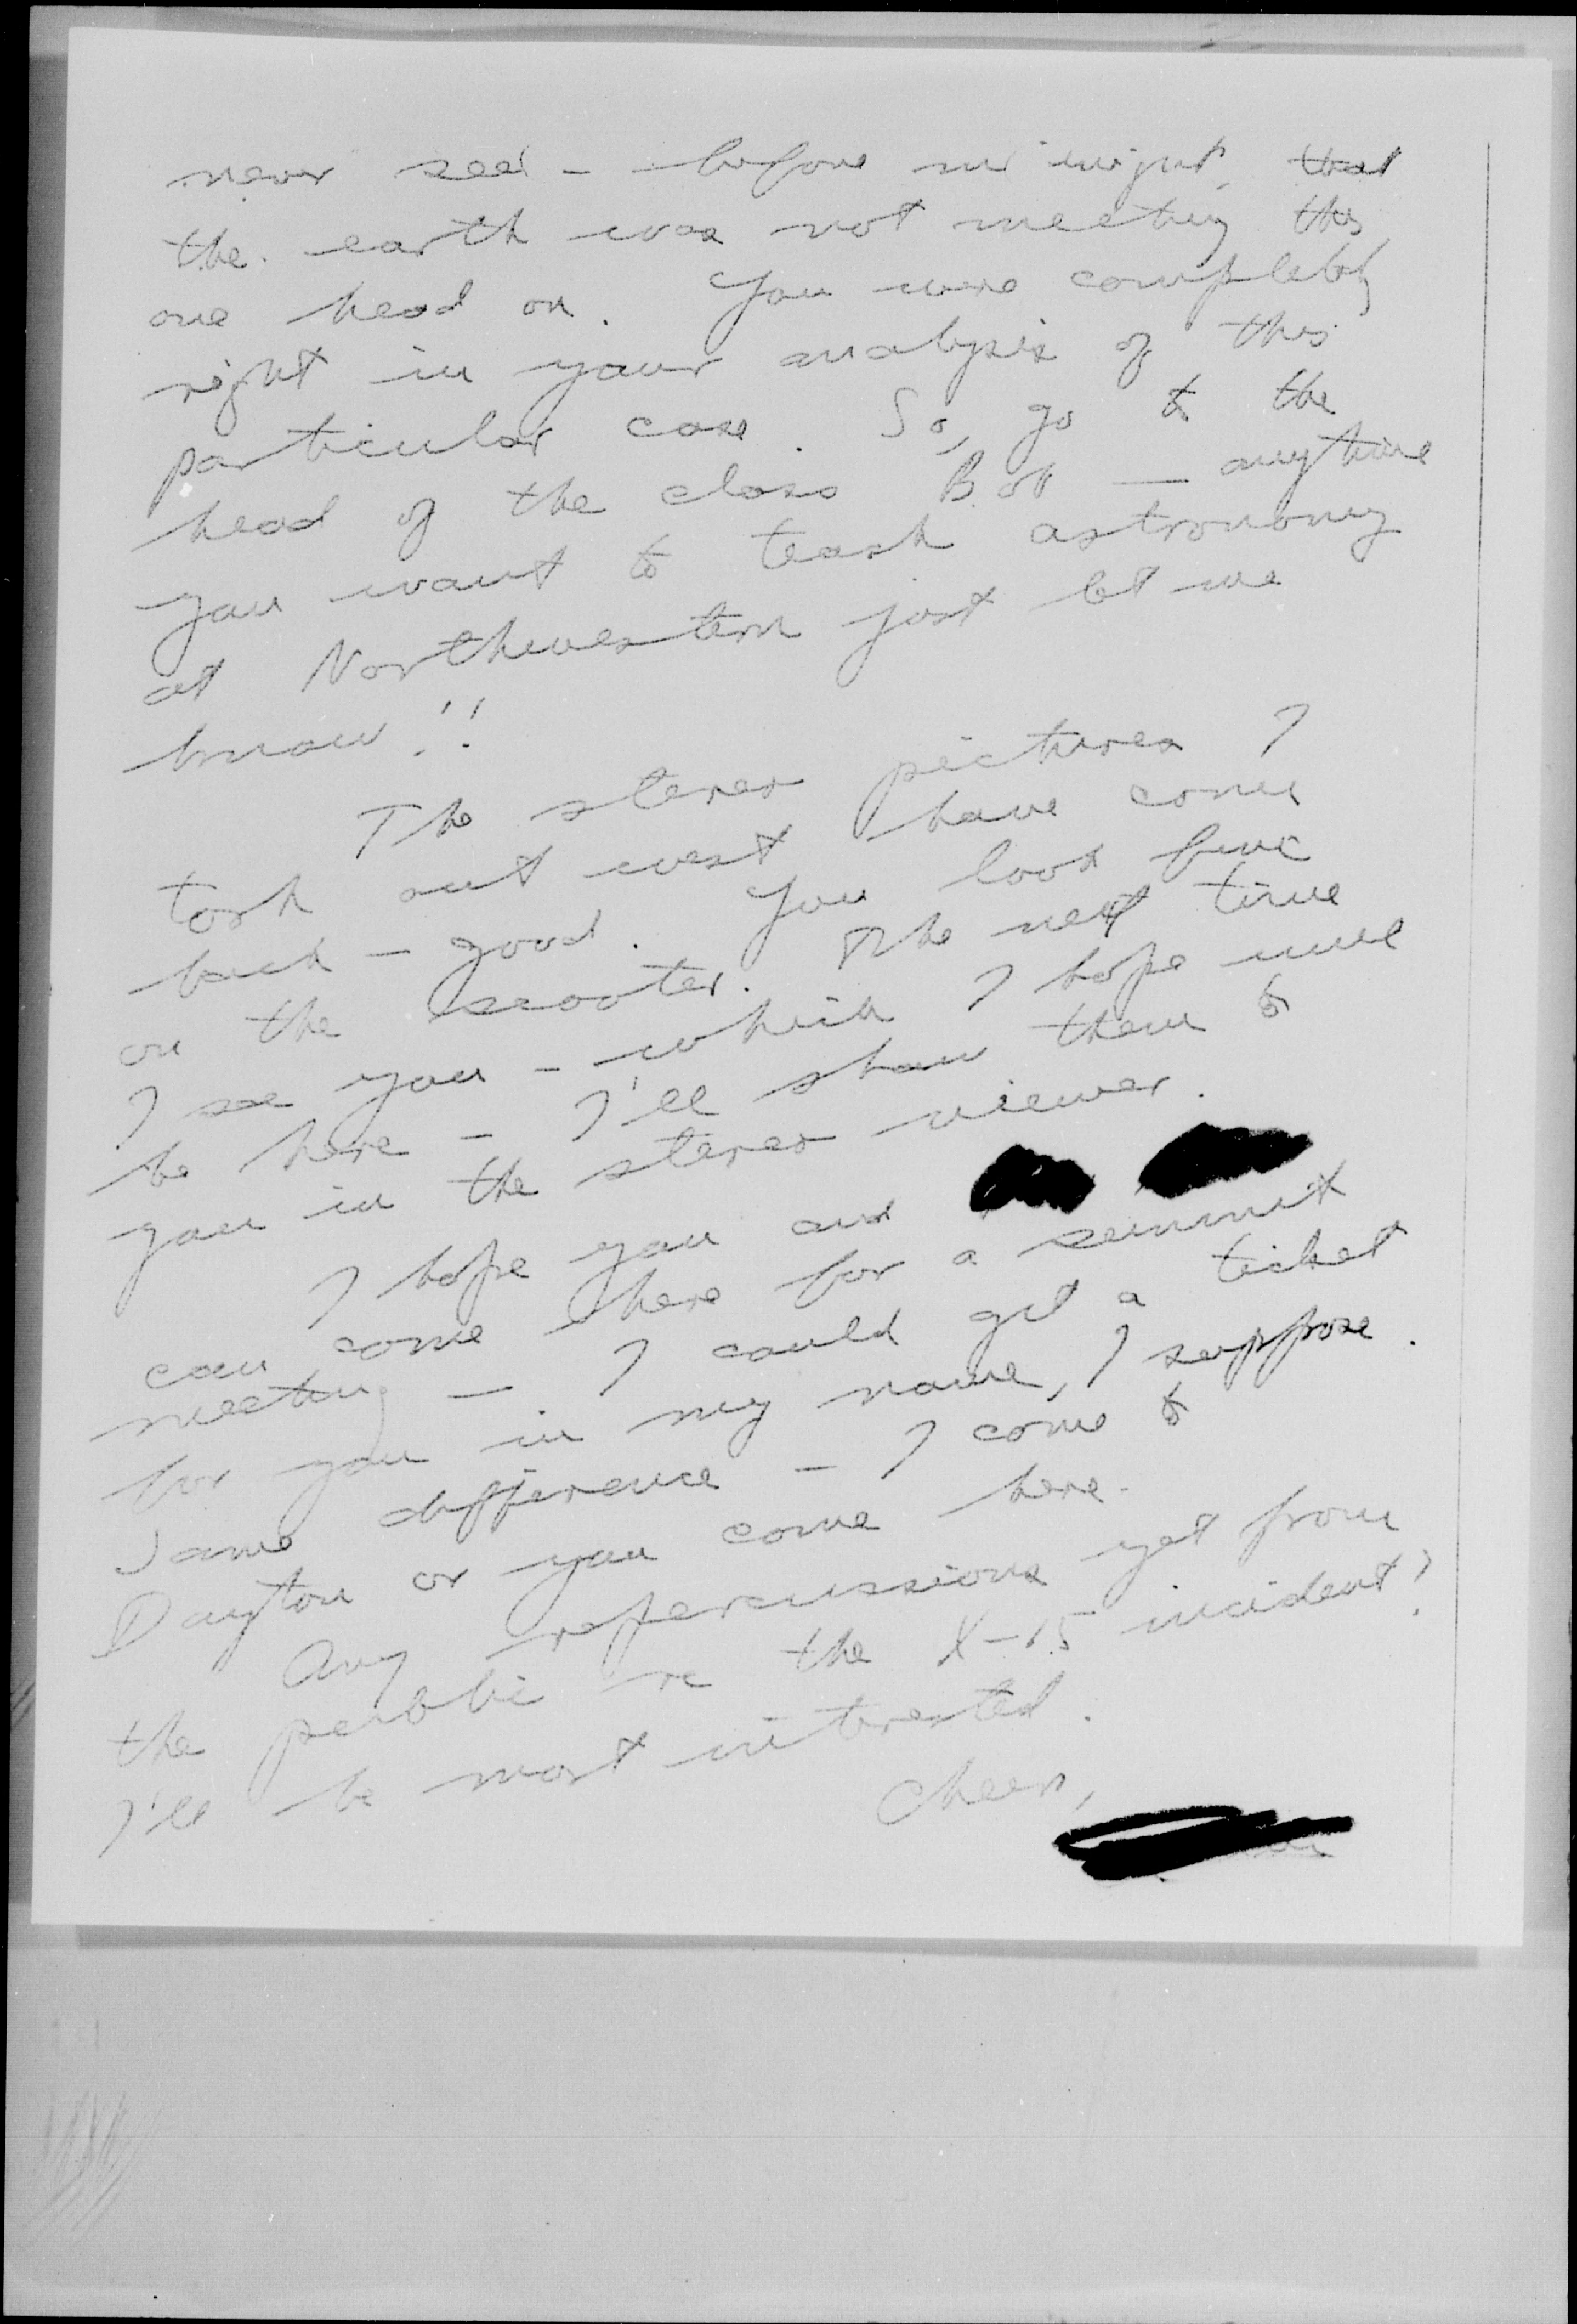 never seen - before midnight, that
the earth was not meeting this
one head on. You were completely
right in your analysis of this
particular case. So, go to the
head of the class Bob — anytime
you want to teach astronomy
at Northwestern just let me
know!!
The stereo pictures I
took out west have come
back - good. You look fine
on the scooter. The next time
I see you - which I hope will
be here - I'll show them to
you in the stereo viewer.
I hope you and
can come here for a summit
meeting - I could get a ticket
for you in my name, I suppose.
Same difference - I come to
Dayton or you come here.
Any repercussions yet from
the public re the X-15 incident?
I'll be most interested.
Cheers,